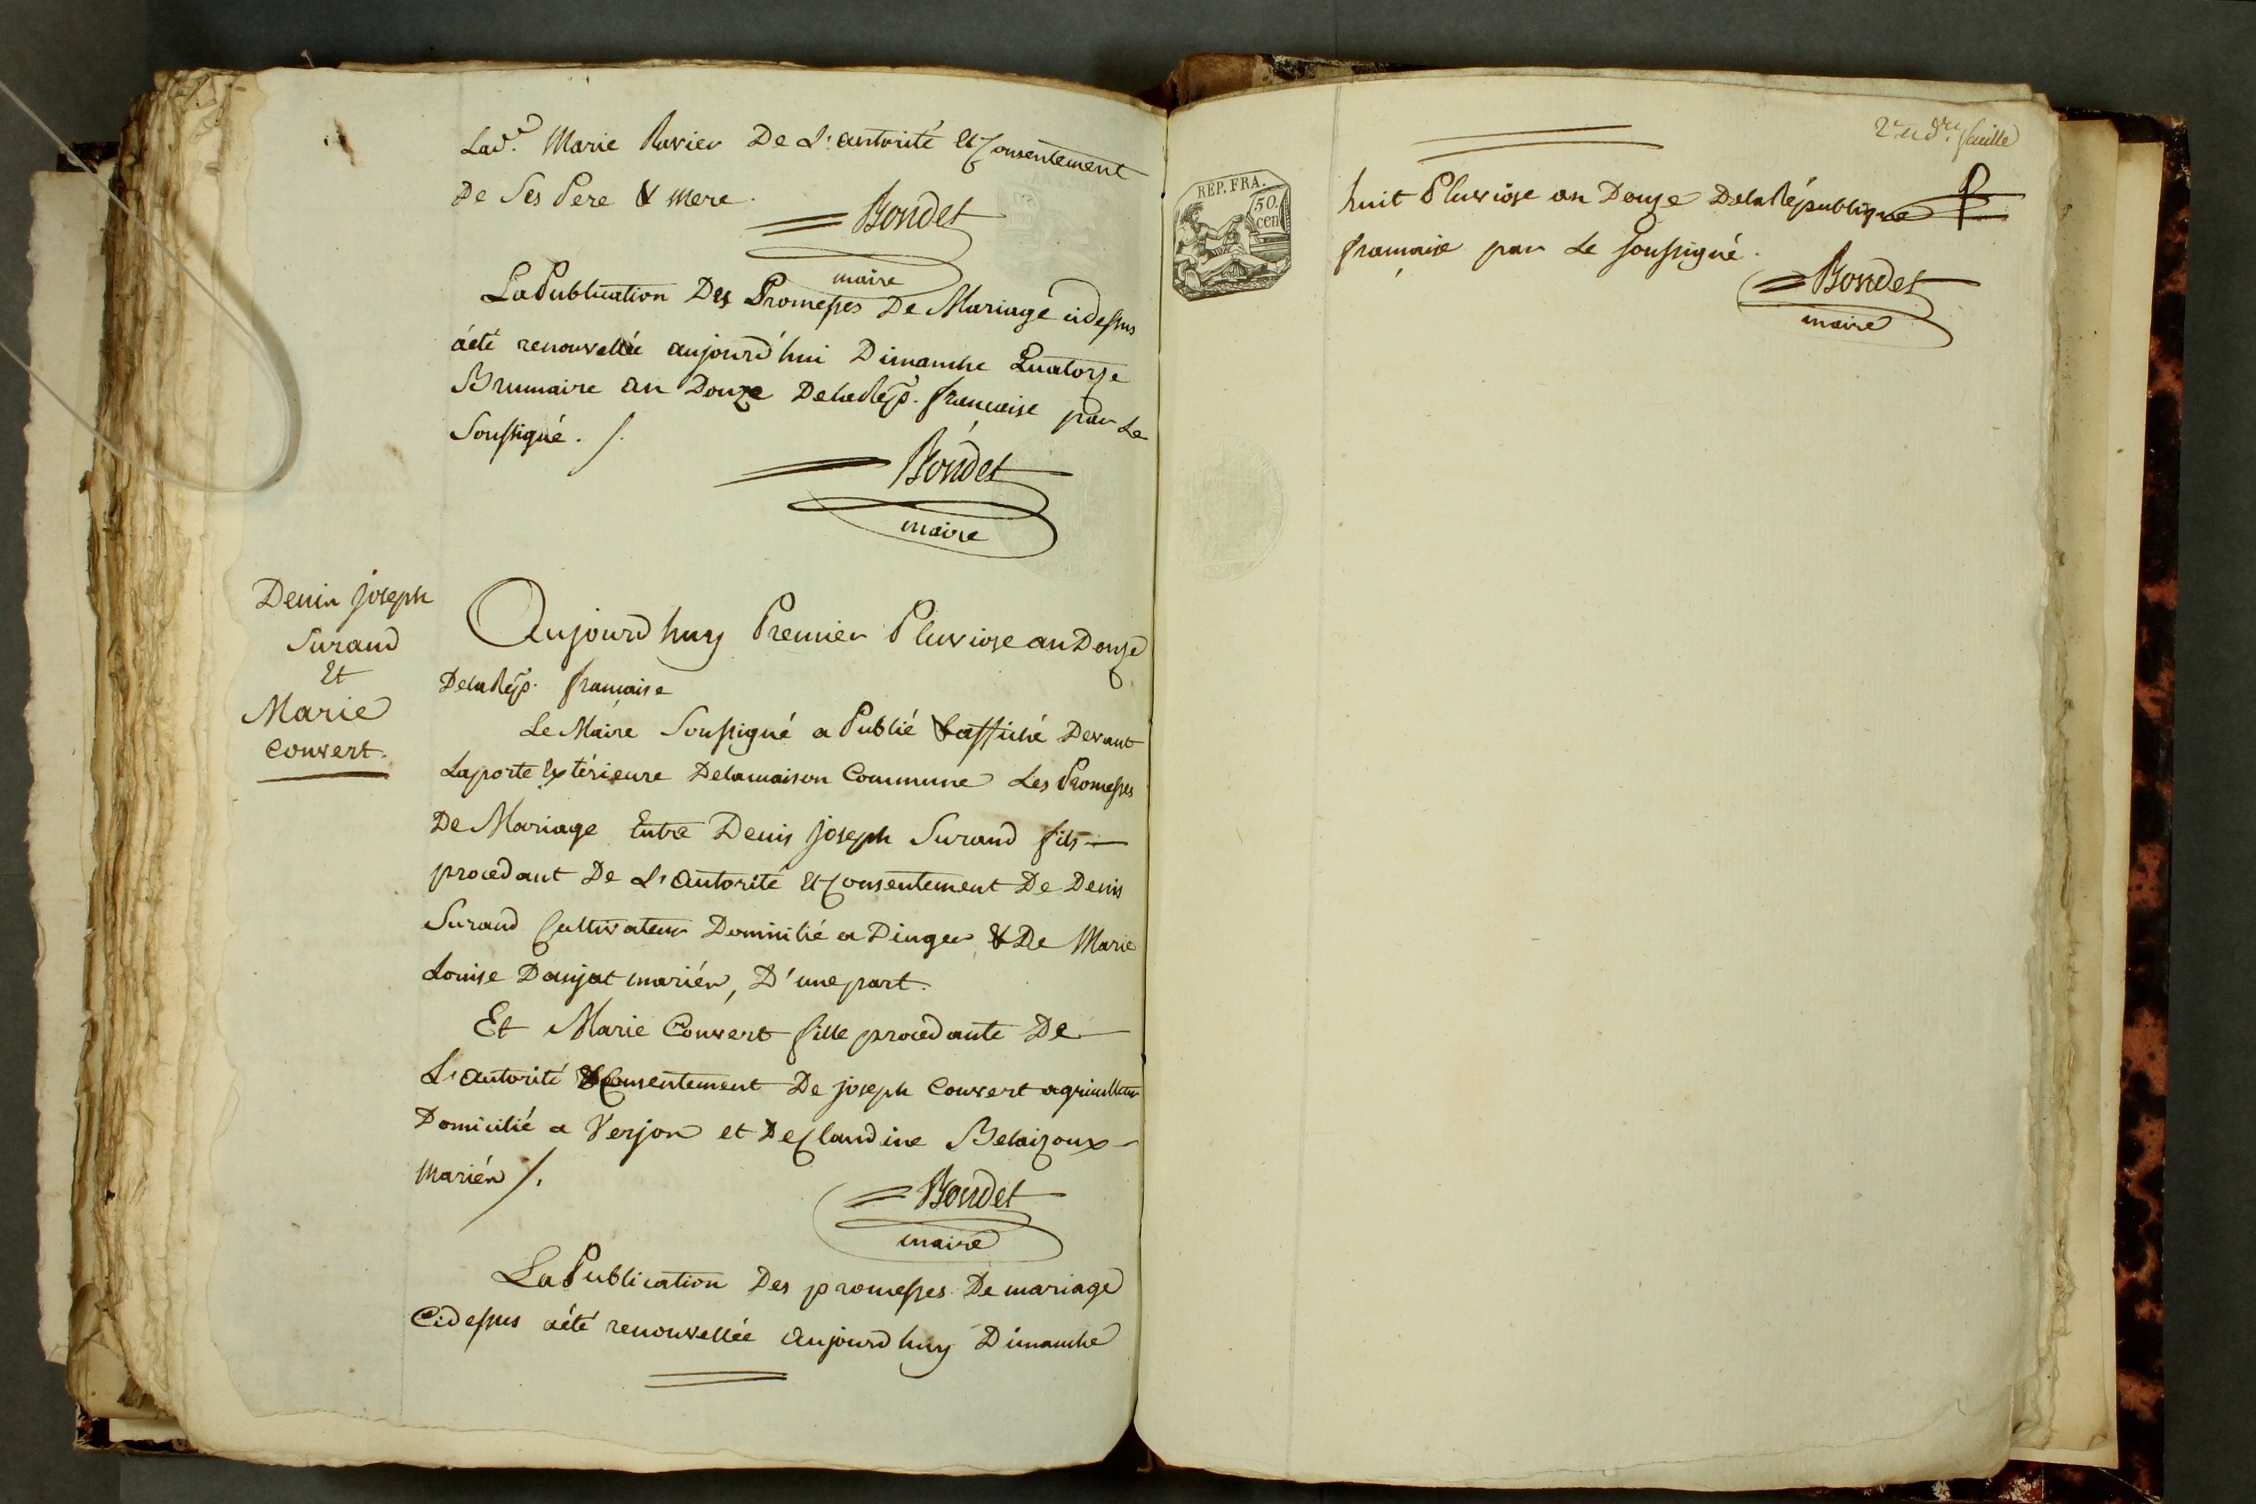 Lad.e Marie Ravier De L'autorité Et Consentement
De Ses Pere & Mere.
Bondet
maire
La Publication Des Promesses De Mariage cidessus
aété renouvellée aujourd'hui Dimanche Quatorze
Brumaire an Douze Delarép. francaise par Le
Soussigné ./.
Bondet
maire
Denis Joseph
Surand
Et
Marie
Convert.
Aujourdhuy Premier Pluviose an Douze
Delarép. francaise
Le Maire Soussigné a Publié & affiché Devant
Laporte Extérieure Delamaison Commune Les Promesses
De Mariage Entre Denis Joseph Surand fils
procedant De L'autorité Et Consentement De Denis
Surand Cultivateur Domicilié a Dingier & De Marie
Louise Danjat mariés, D'une part.
Et Marie Convert fille procedante De
L'autorité & Consentement De Joseph Convert agriculteur
Domicilié a Verjon et De Claudine Belaizoux
Mariés ./.
Bondet
maire
La Publication Des promesses De mariage
Cidessus aété renouvellée aujourdhuy Dimanche
2e et dre feuille
REP. FRA.
50.
cen
huit Pluviose an Douze Delarépublique
francaise par Le soussigné.
Bondet
maire